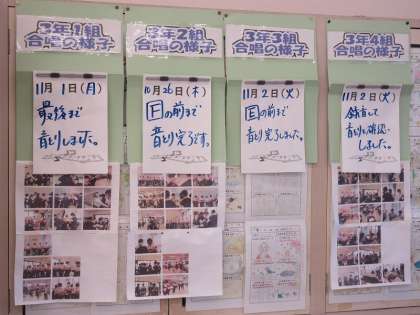 3年1組
合唱の様子
11月1日(月)
最後まで
音とりします。
3年2組
合唱の様子
10月26日(木)
Fの前まで
音とり完了です。
3年3組
合唱の様子
11月2日(火)
Eの前まで
音とり完了しました。
3年4組
合唱の様子
11月2日(火)
録音して
音とり確認
しました。